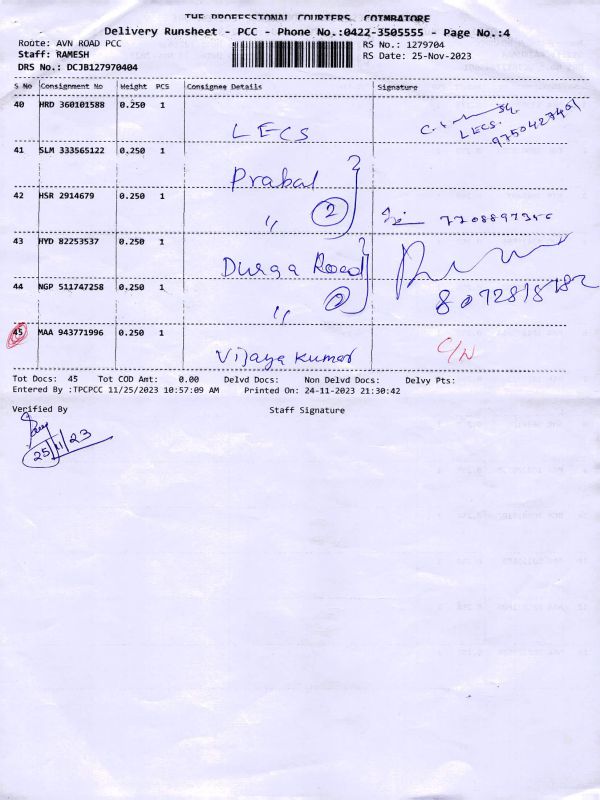 THE PROFESSIONAL COURIERS, COIMBATORE
Delivery Runsheet - PCC - Phone No.:0422-3505555 - Page No.:4
Route: AVN ROAD PCC
RS No.: 1279704
Staff: RAMESH
RS Date: 25-Nov-2023
DRS No.: DCJB127970404
S No Consignment No Weight PCS Consignee Details Signature
40 HRD 360101588 0.250 1 LECS
LECS.
9750427401
41 SLM 333565122 0.250 1 Prabal
42 HSR 2914679 0.250 1 〃 2
43 HYD 82253537 0.250 1 Durga Road
44 NGP 511747258 0.250 1 〃 2
45 MAA 943771996 0.250 1 Vijaya Kumar C/N
Tot Docs: 45 Tot COD Amt: 0.00 Delvd Docs: Non Delvd Docs: Delvy Pts:
Entered By :TPCPCC 11/25/2023 10:57:09 AM Printed On: 24-11-2023 21:30:42
Verified By Staff Signature
25/11/23